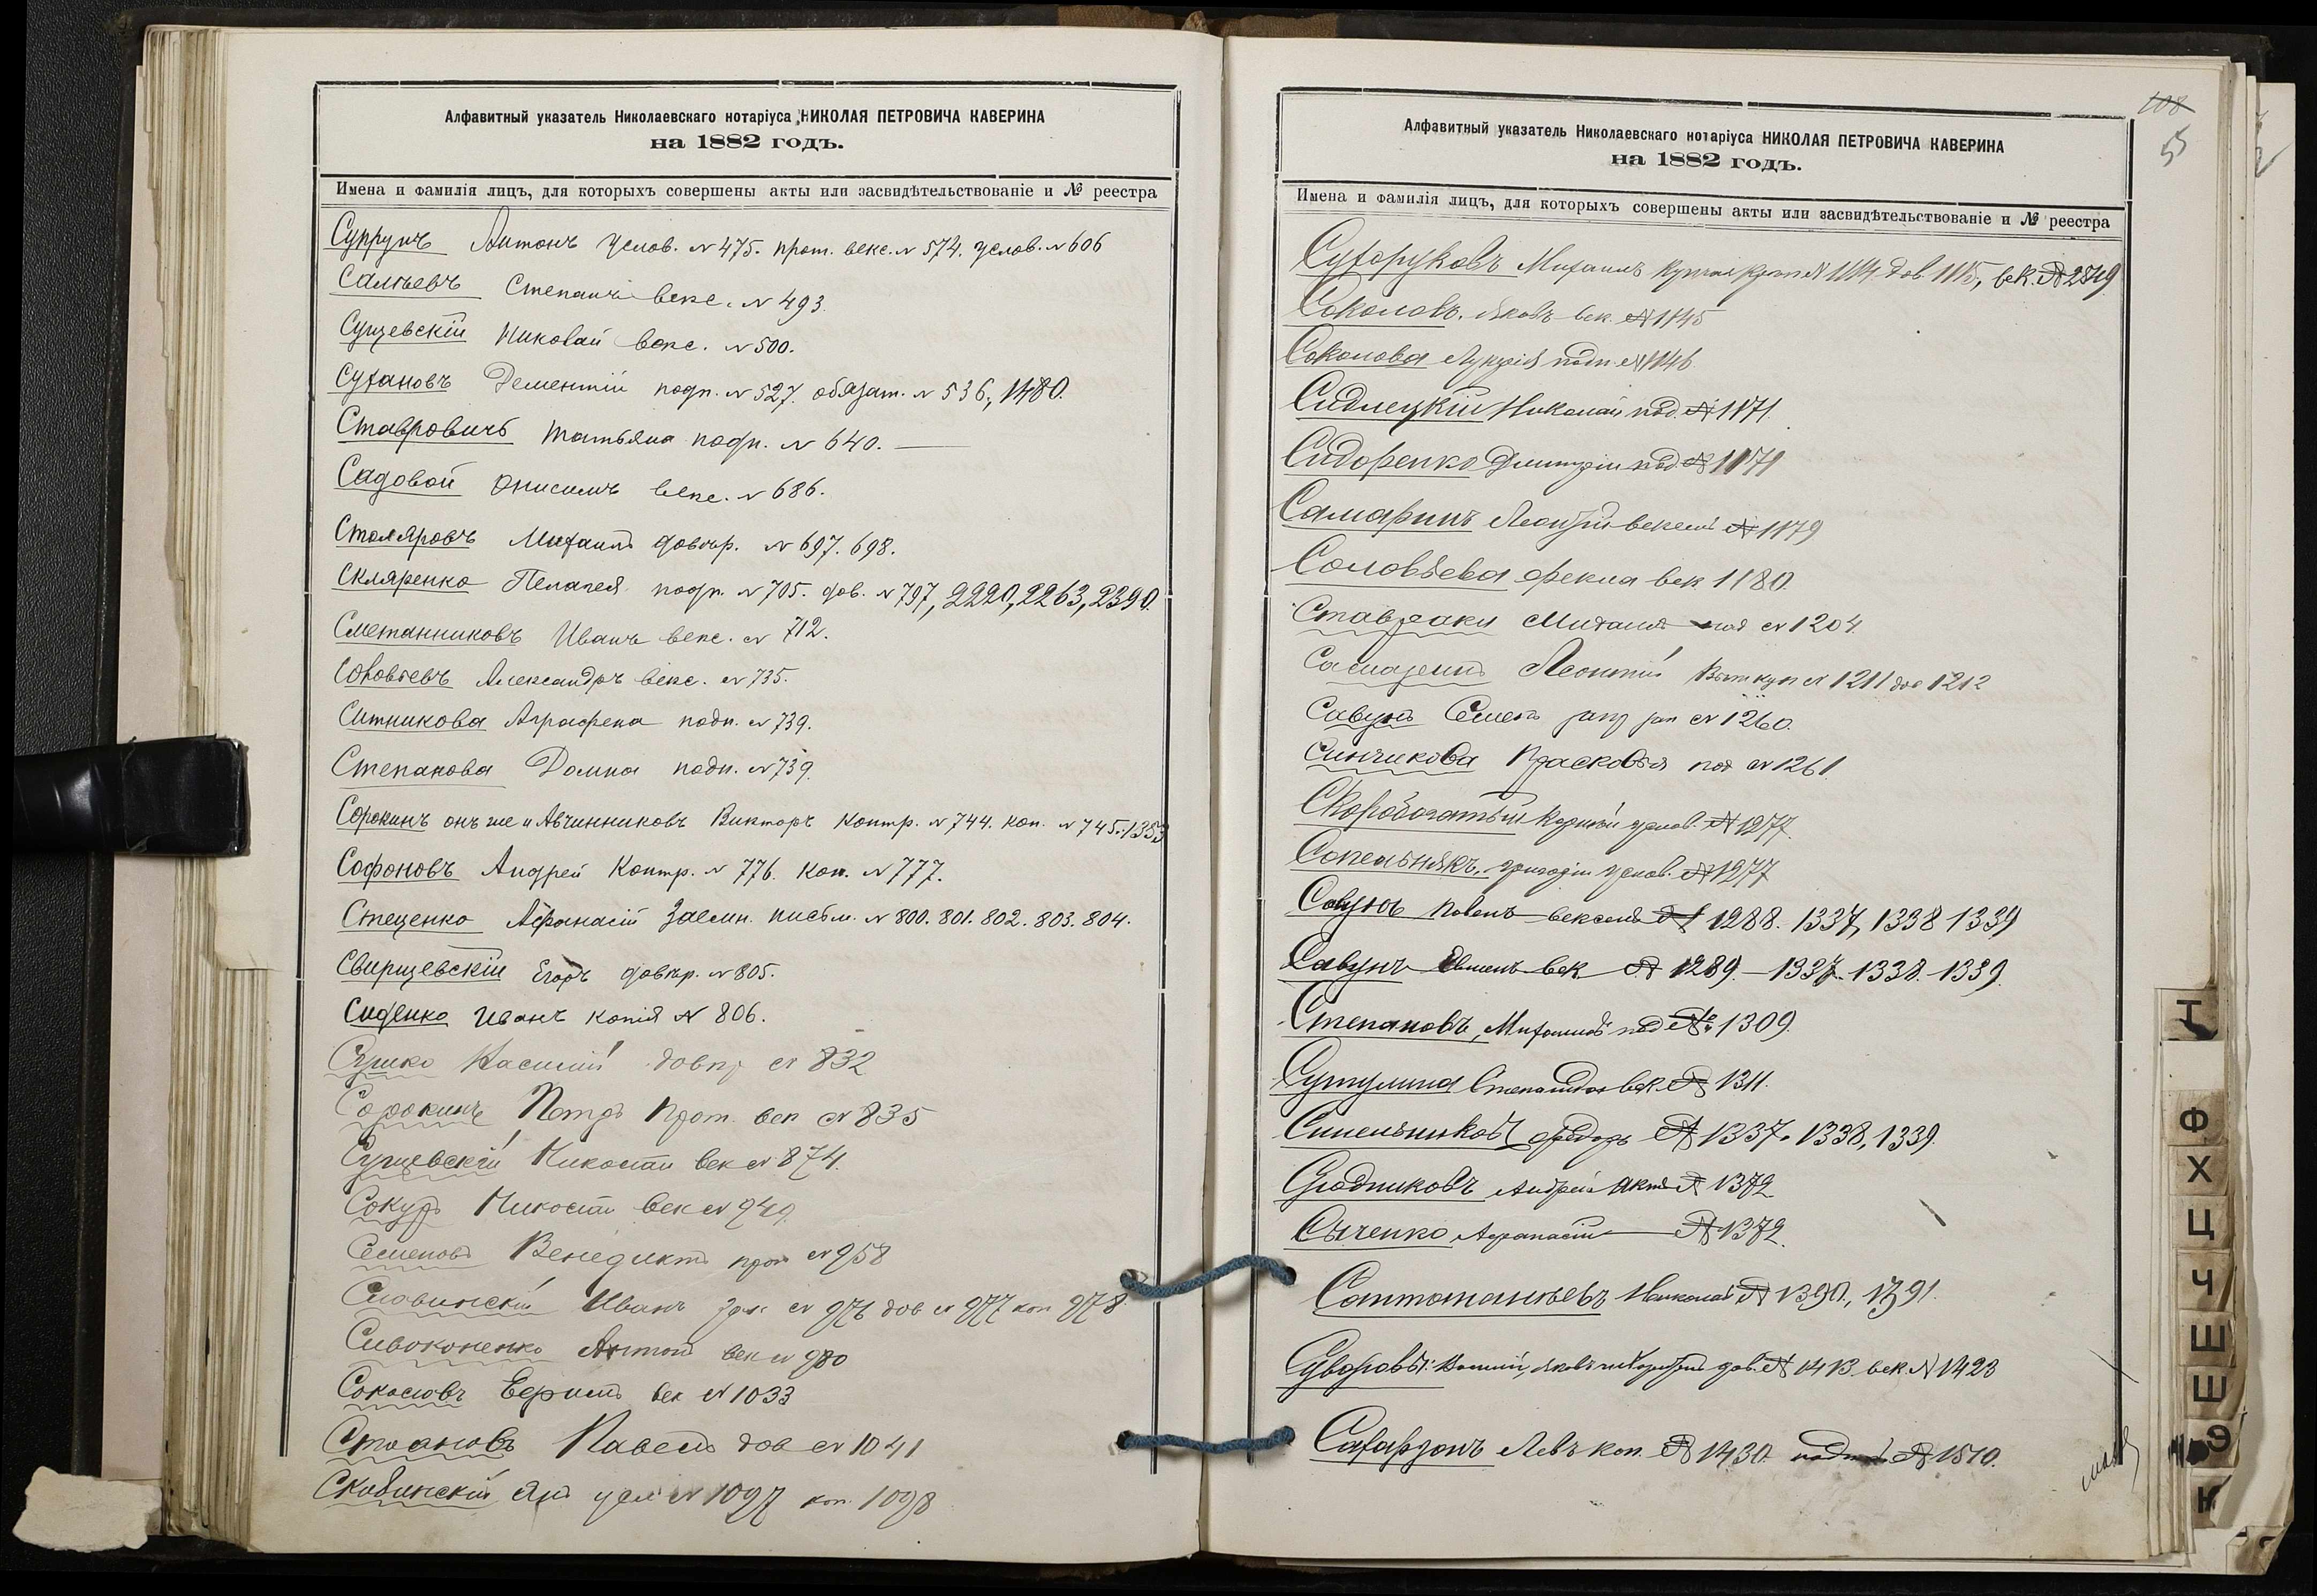 Алфавитный указатель Николаевскаго нотаріуса НИКОЛАЯ ПЕТРОВИЧА КАВЕРИНА
на 1882 годъ.
Имена и фамилія лицъ, для которыхъ совершены акты или засвидѣтельствованіе и № реестра
Супрунъ Антонъ услов. № 475. прот. векс. № 574. услов. № 606
Степанъ векс. № 493.
Сущевскій Николай векс. № 500.
Сухановъ Дементій подп. № 527. обязат. № 536, 1480.
Ставровичъ Татьяна подп. № 640.
Садовой Онисимъ векс. № 686.
Столяровъ Михаилъ довѣр. № 697. 698.
Скляренко Пелагея подп. № 705. дов. № 797, 2220, 2263, 2390.
Сметанниковъ Иванъ векс. № 712.
Соловьевъ Александръ векс. № 735.
Ситникова Аграфена подп. № 739.
Степанова Домна подп. № 739.
Сорокинъ онъ же и Авчинниковъ Викторъ контр. № 744. коп. № 745. 1353
Софоновъ Андрей контр. № 776. коп. № 777.
Стеценко Афанасій заемн. письм. № 800. 801. 802. 803. 804.
Свирщевскій Егоръ довѣр. № 805.
Сиденко Иванъ копія № 806.
№ 832
Сорокинъ Петръ прот. век № 835
Сущевскій Николай век № 874.
Сокуръ Николай век № 949.
Семеновъ Венедиктъ прот № 958
Славинскій Иванъ № 976 дов № 977 коп 978
Сивоконенко Антонъ век № 980
Соколовъ век № 1033
Стоановъ Павелъ дов № 1041
Скабинскій Янъ усл № 1097 коп. 1098
Алфавитный указатель Николаевскаго нотаріуса НИКОЛАЯ ПЕТРОВИЧА КАВЕРИНА
на 1882 годъ.
108
55
Имена и фамилія лицъ, для которыхъ совершены акты или засвидѣтельствованіе и № реестра
Сухоруковъ Михаилъ № 1114. дов. 1115, век. № 2849
Соколовъ Яковъ век. № 1145
Соколова подп. № 1146.
Сидлецкій Николай под. № 1171.
Сидоренко Дмитрій под. № 1171
Самаринъ Леонтій вексель № 1179
Соловьева Фекла век. 1180.
Ставраки Михаилъ под № 1204.
Самаринъ Леонтій куп № 1211 дов 1212
Савунъ Семенъ № 1260.
Синчикова Прасковья под № 1261
Скоробогатый услов. № 1277.
Сопельнякъ Григорій услов. № 1277
Савунъ Павелъ вексель № 1288. 1337, 1338 1339
Савунъ век № 1289. 1337. 1338. 1339.
Степановъ, Михаилъ под № 1309.
Сутулина Степанида век. № 1311.
Синельниковъ Федоръ № 1337. 1338, 1339.
Андрей акт № 1372
Сыченко Афанасій № 1372.
Николай № 1390, 1391.
Суворовы: дов. № 1413. век. № 1423
Сахарзонъ Левъ коп. № 1430. № 1510.
Т
Ф
Х
Ц
Ч
Ш
Щ
Э